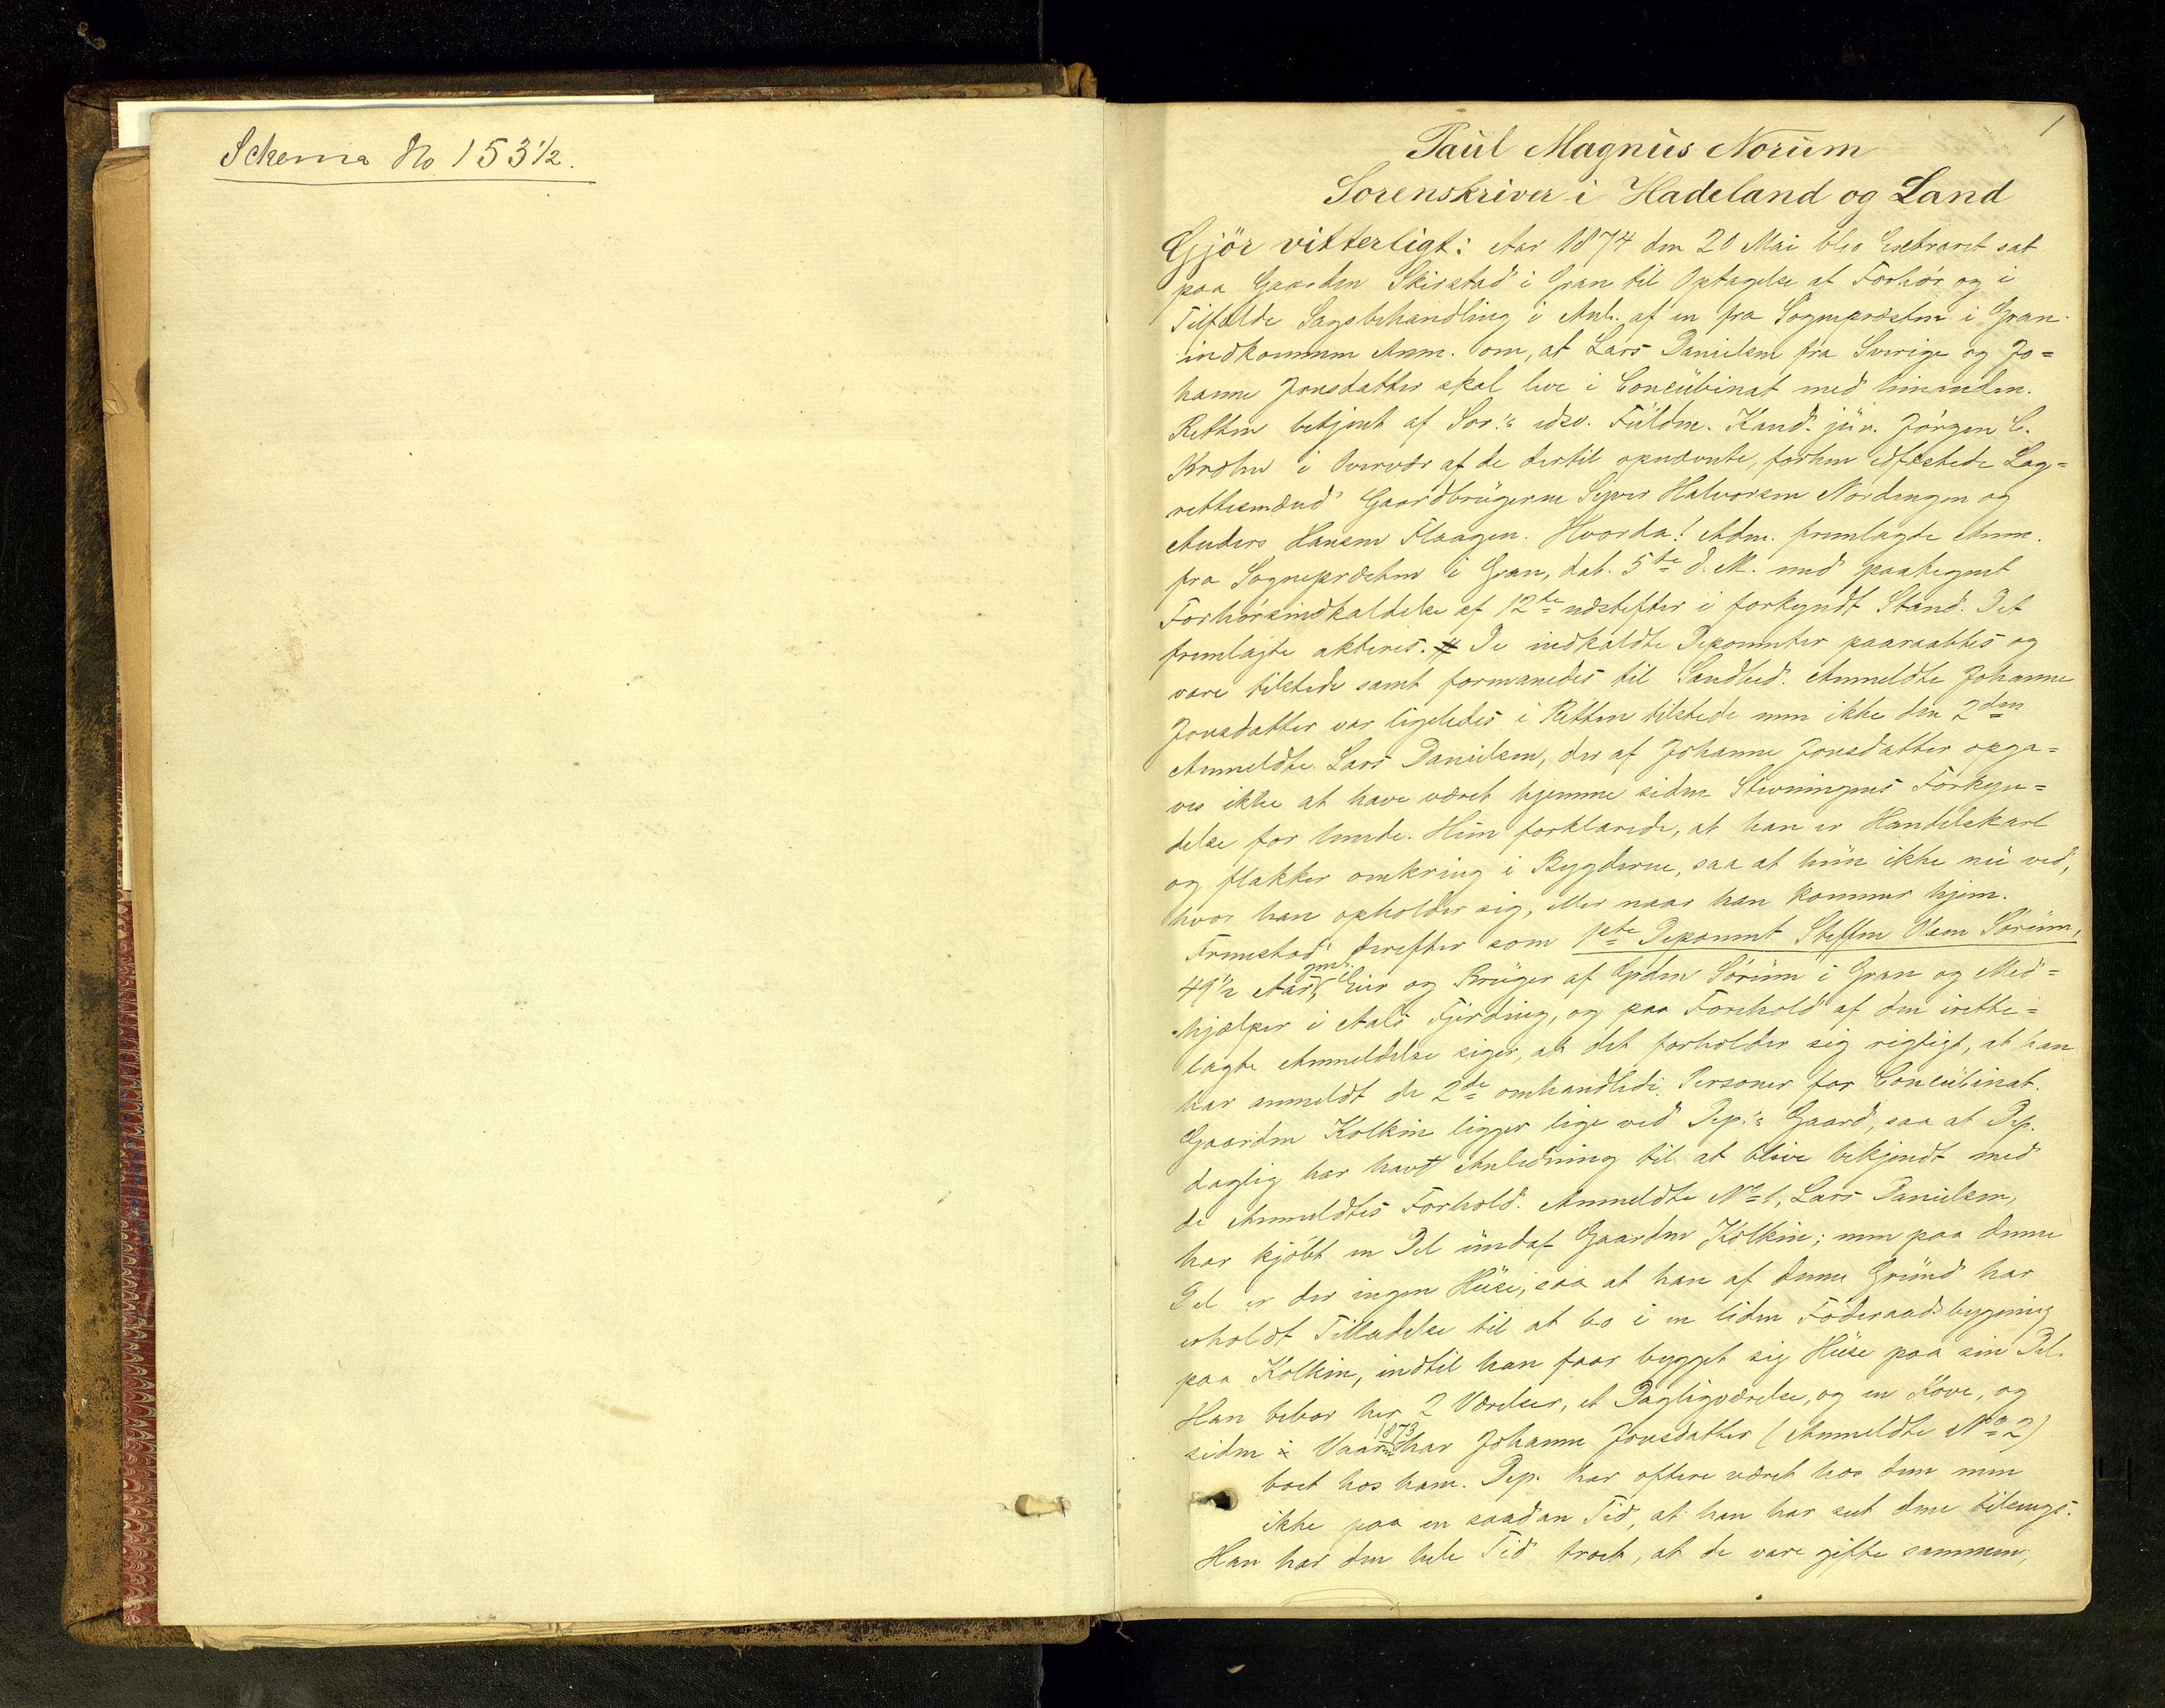 Schema No 153½.
1
Paul Magnus Norum
Sorenskriver i Hadeland og Land
Gjör vitterligt: Aar 1874 den 20 Mai blev Extraret sat
paa Gaarden Skirstad i Gran til Optagelse af Forhör og i
Tilfælde Sagsbehandling i Anl. af en fra Sognepræsten i Gran
indkommen Anm. om, at Lars Danielsen fra Sverige og Jo=
hanne Jonsdatter skal leve i Concubinat med hinanden.
Retten betjent af Sor.'s edsv. Fuldm. Kand. jur. Jörgen C.
Kræhn i Overvær af de dertil opnævnte, forhen edfæstede Lag=
rettesmænd Gaardbrugerne Syver Halvorsen Nordengen og
Anders Hansen Flaagen. Hvorda! Adm. fremlagde Anm.
fra Sognepræsten i Gran, dat. 5te d. M. med paategnet
Forhörsindkaldelse af 12te næstefter i forkyndt Stand. Det
fremlagte akteres. De indkaldte Deponenter paaraabtes og
vare tilstede samt formanedes til Sandhed. Anmeldte Johanne
Jonsdatter var ligeledes i Retten tilstede men ikke den 2den
Anmeldte Lars Danielsen, der af Johanne Jonsdatter opga=
ves ikke at have været hjemme siden Stevningens Forkyn=
delse for hende. Hun forklarede, at han er Handelskarl
og flakker omkring i Bygderne, saa at hun ikke nu ved,
hvor han opholder sig, eller naar han kommer hjem.
Fremstod derefter som 1ste Deponent Steffen Olsen Sörum,
49½ Aar gml. Eier og Bruger af Grdn Sörum i Gran og Med=
hjælper i Aals Fjerding, og paa Forehold af den irette=
lagte Anmeldelse siger, at det forholder sig rigtigt, at han
har anmeldt de 2de omhandlede Personer for Concubinat.
Gaarden Kolkin ligger lige ved Dep.'s Gaard, saa at Dep.
daglig har havt Anledning til at blive bekjendt med
de Anmeldtes Forhold. Anmeldte No 1, Lars Danielsen,
har kjöbt en Del undaf Gaarden Kolkin; men paa denne
Del er der ingen Huse, saa at han af denne Grund har
erholdt Tilladelse til at bo i en liden Föderaadsbygning
paa Kolkin, indtil han faar bygget sig Huse paa sin Del.
Han bebor her 2 Værelser, et Dagligværelse, og en Kove, og
siden Vaaren 1873 har Johanne Jonsdatter (Anmeldte No 2)
boet hos ham. Dep. har oftere været hos dem men
ikke paa en saadan Tid, at han har seet dem tilsengs.
Han har den hele Tid troet, at de vare gifte sammen,